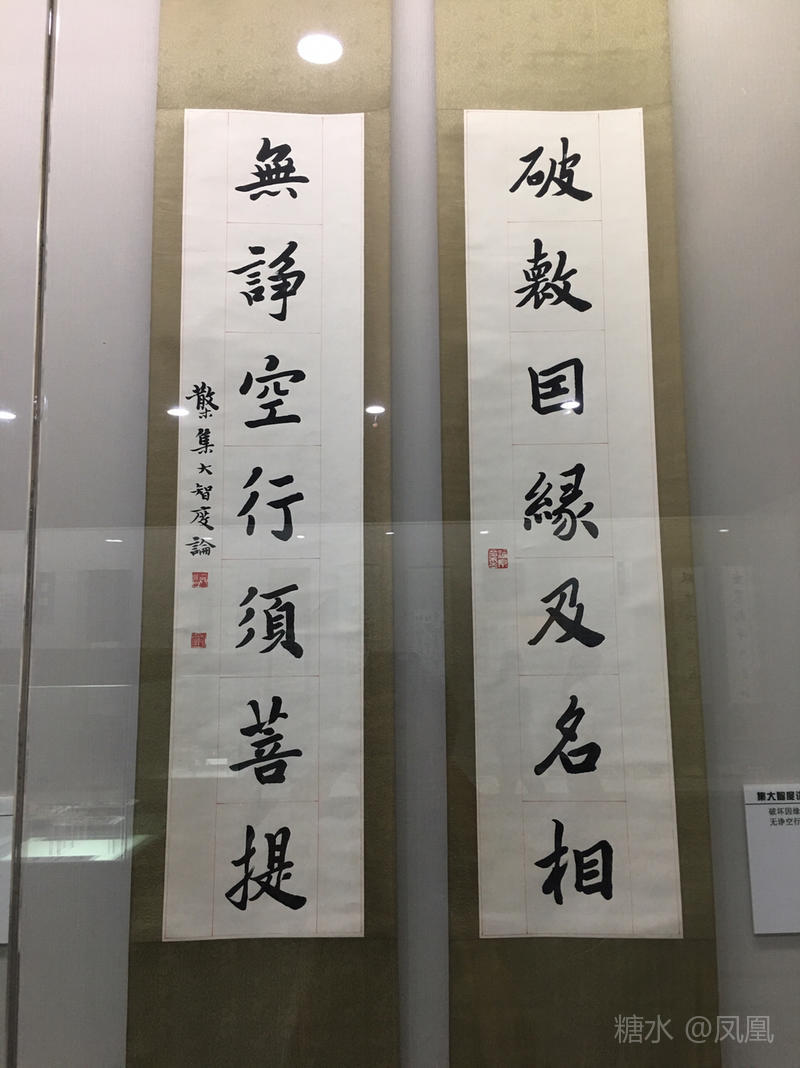 破𣀩囙縁及名相
無諍空行須菩提
散木集大智度論
集大智度论
破坏因缘
无诤空行
糖水 @凤凰